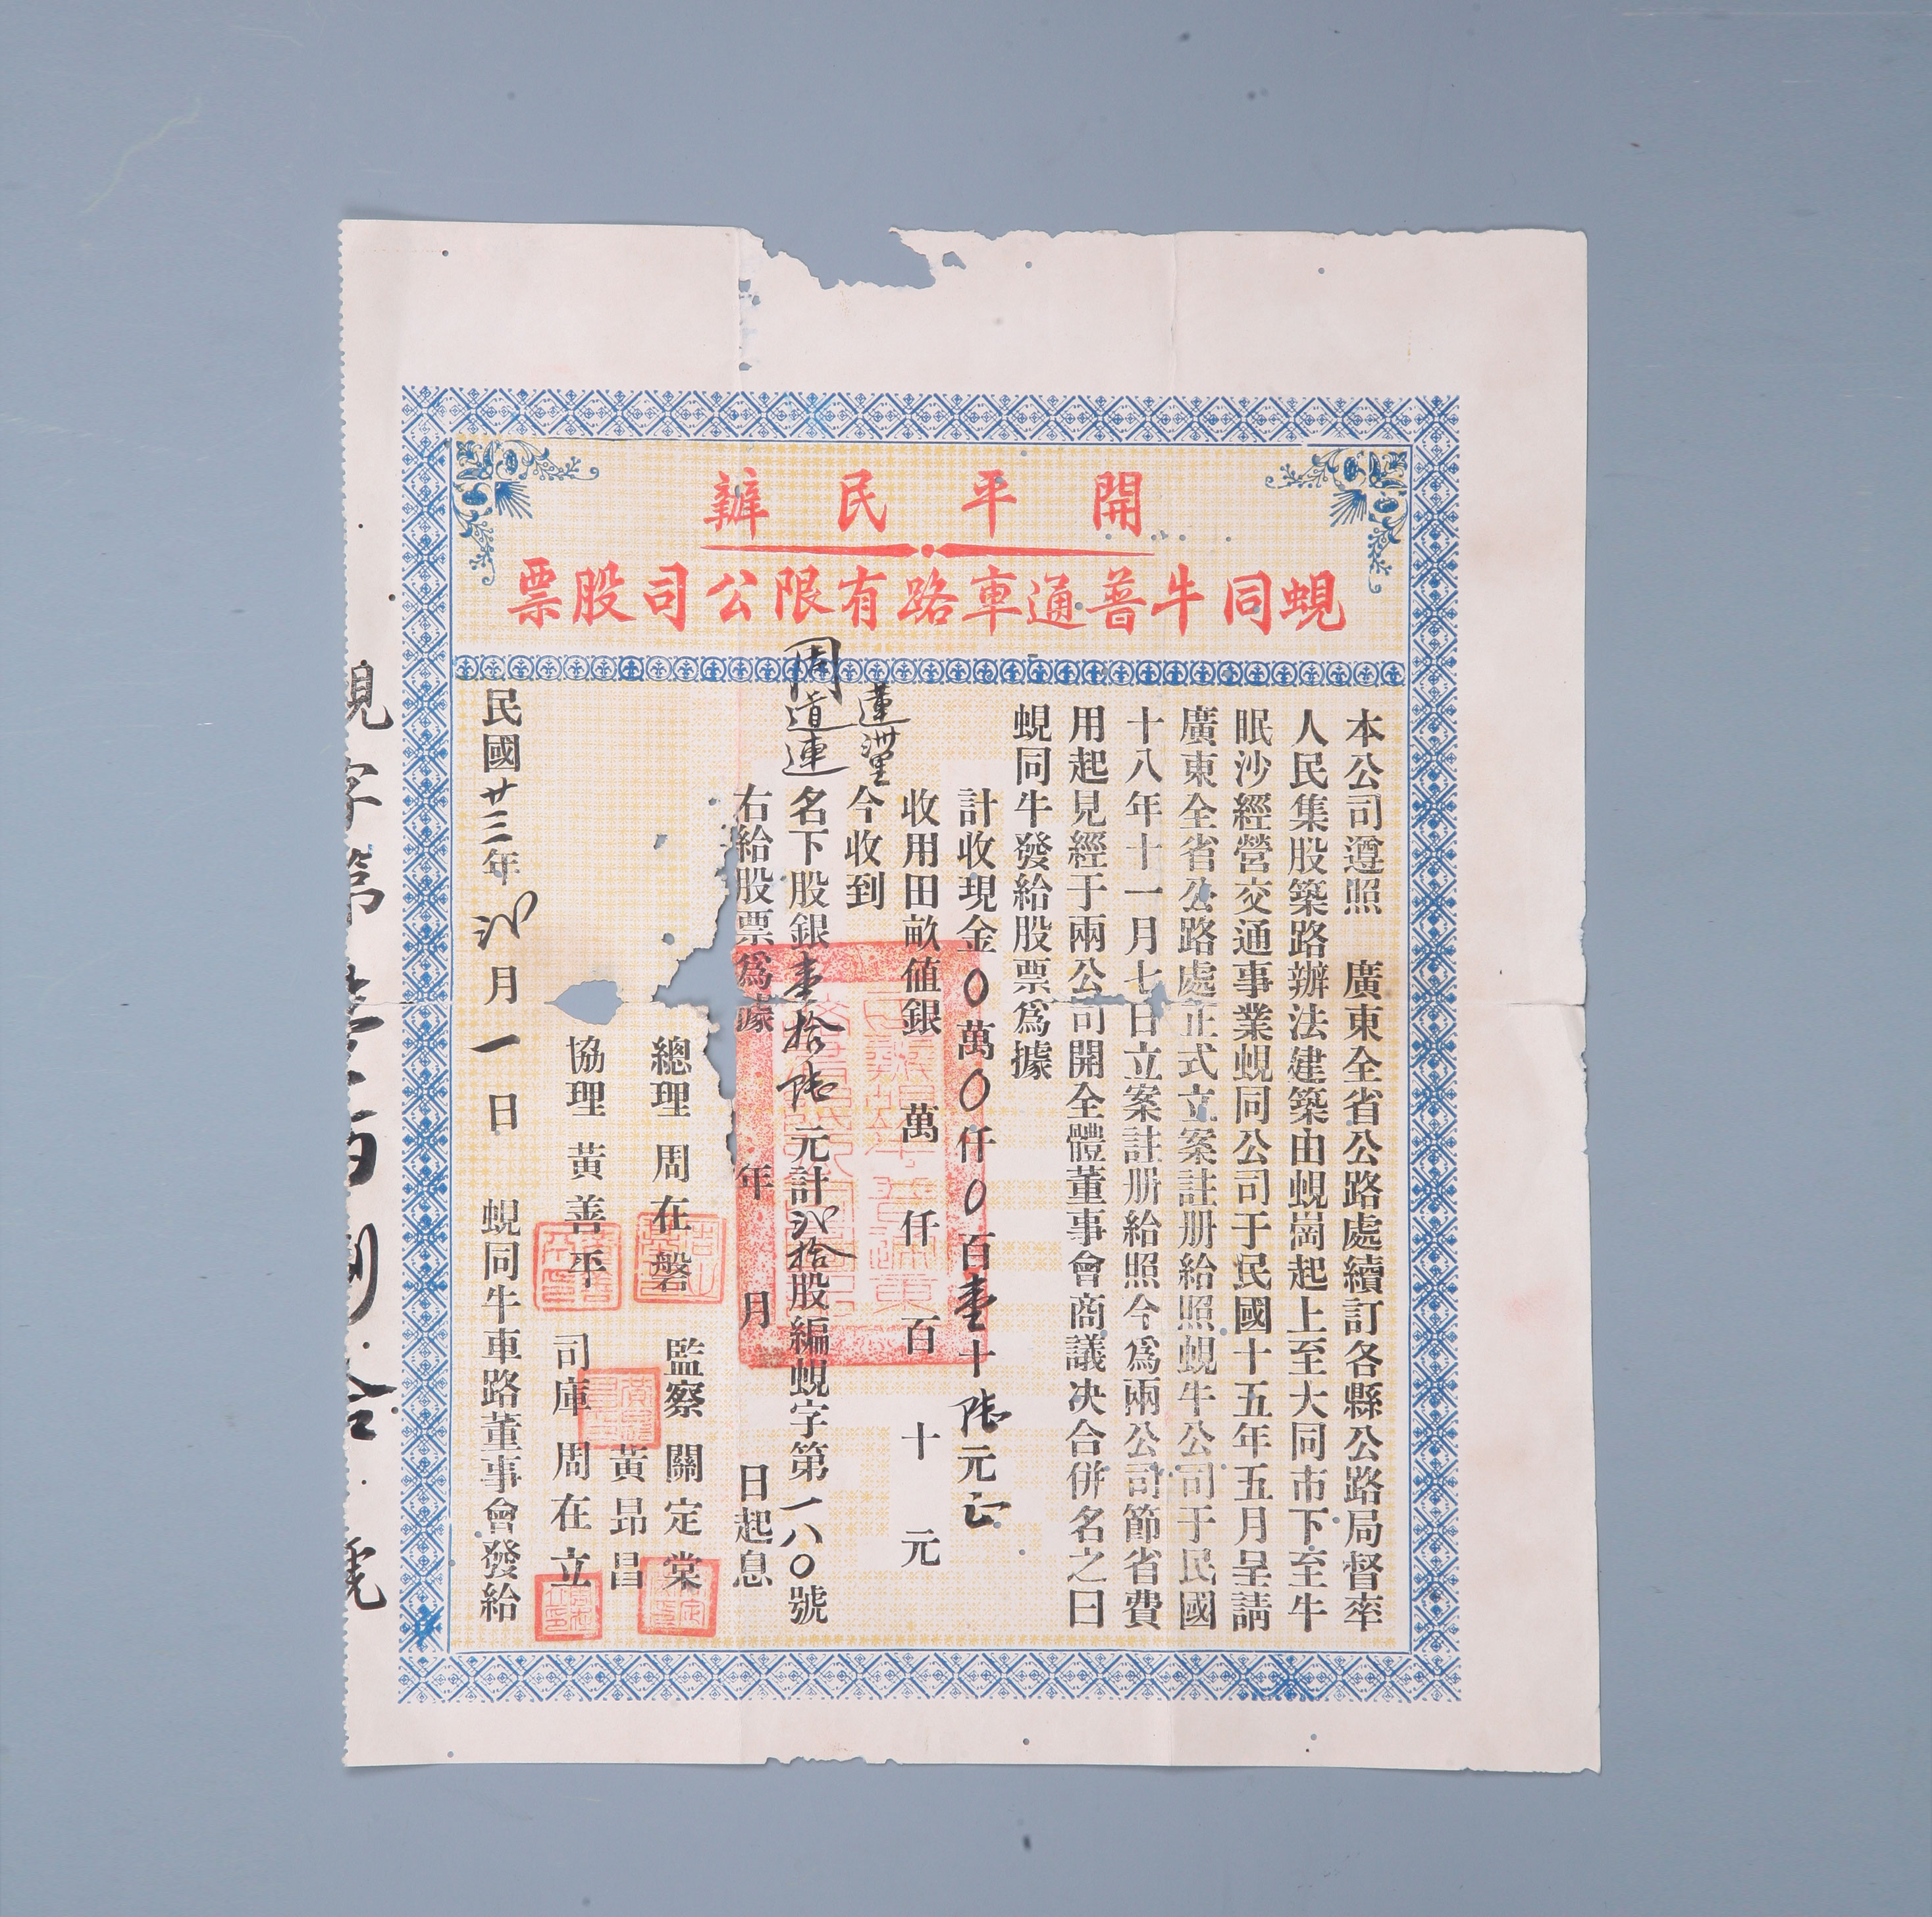 開平民辦
蜆同牛普通車路有限公司股票
本公司遵照 廣東全省公路處續訂各縣公路局督率
人民集股築路辦法建築由蜆崗起上至大同市下至牛
眠沙經營交通事業蜆同公司于民國十五年五月呈請
廣東全省公路處正式立案註册給照蜆牛公司于民國
十八年十一月七日立案註册給照今為兩公司節省費
用起見經于兩公司開全體董事會商議决合併名之曰
蜆同牛發給股票為據
計收現金0萬0仟0百壹十陸元正
收用田畝值銀 萬 仟 百 十 元
蓮洲里今收到
周道連名下股銀壹拾陸元計弍拾股編蜆字第一八〇號
右給股票為據 年 月 日起息
總理 周在磐 監察 關定棠
黃昂昌
協理 黃善平 司庫 周在立
民國廿三年弍月一日 蜆同牛車路董事會發給
蜆字第壹百捌拾號